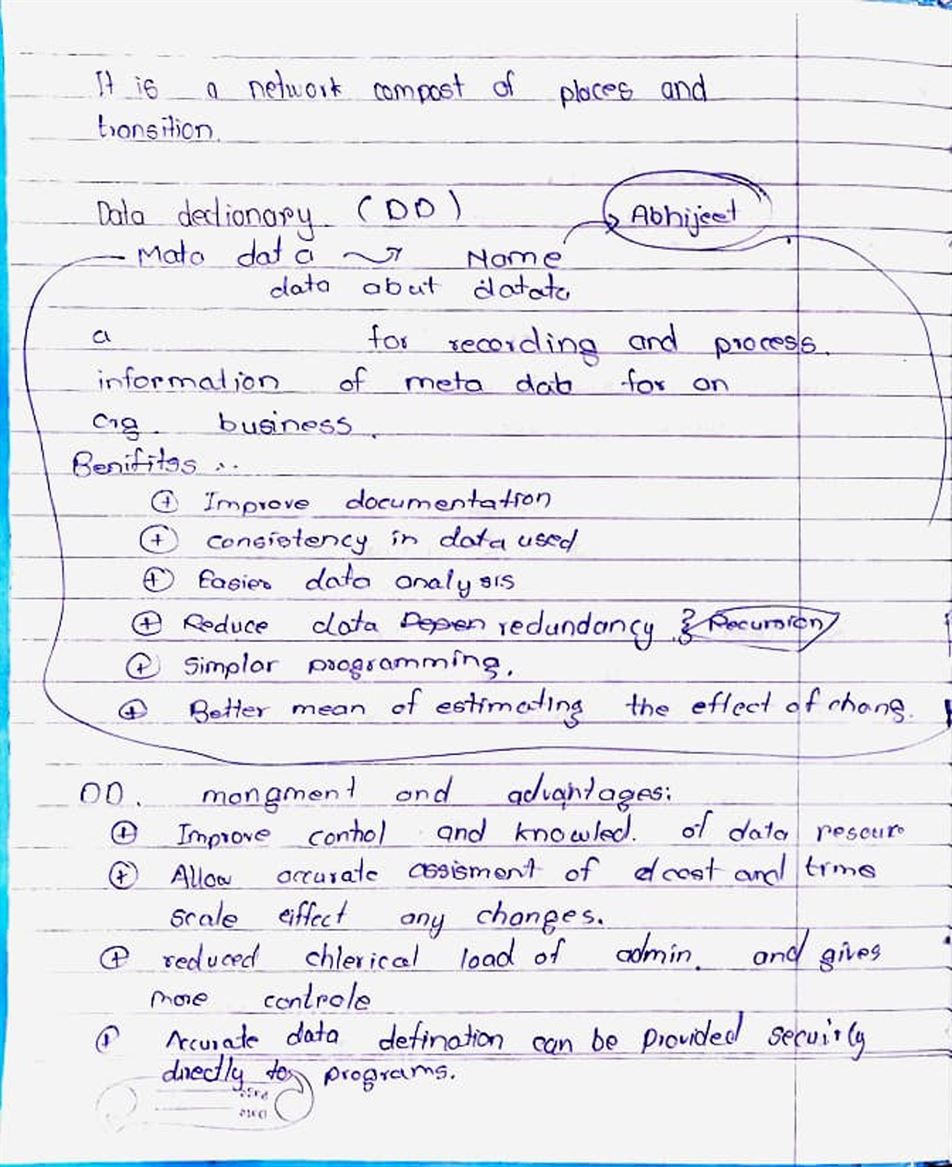 It is a network compost of places and
transition.
Data dectionary (DD)
Abhijeet
Mata data Name
data abut datata
a for recording and process.
information of meta dab for an
org. business.
Benifitgs :.
+ Improve documentation
+ consistency in data used
+ Easier data analysis
+ Reduce data Depen redundancy } Recursion
+ Simplar programming.
+ Better mean of estimating the effect of chang.
DD. mangment and advantages:
+ Improve control and knowled. of data resour
+ Allow accurate assisment of cost and time
scale eiffect any changes.
+ reduced chlerical load of admin. and gives
more controle
+ Accurate data defination can be provided secuirly
directly to programs.